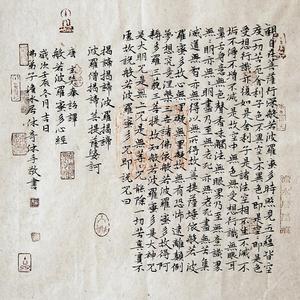 觀自在菩薩行深般若波羅蜜多時照見五蘊皆空
度一切苦厄舍利子色不異空空不異色色即是空空即是色
受想行識亦復如是舍利子是諸法空相不生不滅不
垢不淨不增不減是故空中無色無受想行識無眼耳
鼻舌身意無色聲香味觸法無眼界乃至無意識界
無無明亦無無明盡乃至無老死亦無老死盡無苦集
滅道無智亦無得以無所得故菩提薩埵依般若波
羅蜜多故心無罣礙無罣礙故無有恐怖遠離顛倒
夢想究竟涅槃三世諸佛依般若波羅蜜多故得阿
耨多羅三藐三菩提故知般若波羅蜜多是大神咒
是大明咒是無上咒是無等等咒能除一切苦真實不
虛故說般若波羅蜜多咒即說咒曰
揭諦揭諦 波羅揭諦
波羅僧揭諦 菩提薩婆訶
唐 玄奘奉詔譯
般若波羅蜜多心經
歲次壬辰年冬月吉日
佛弟子 居 沐手敬書